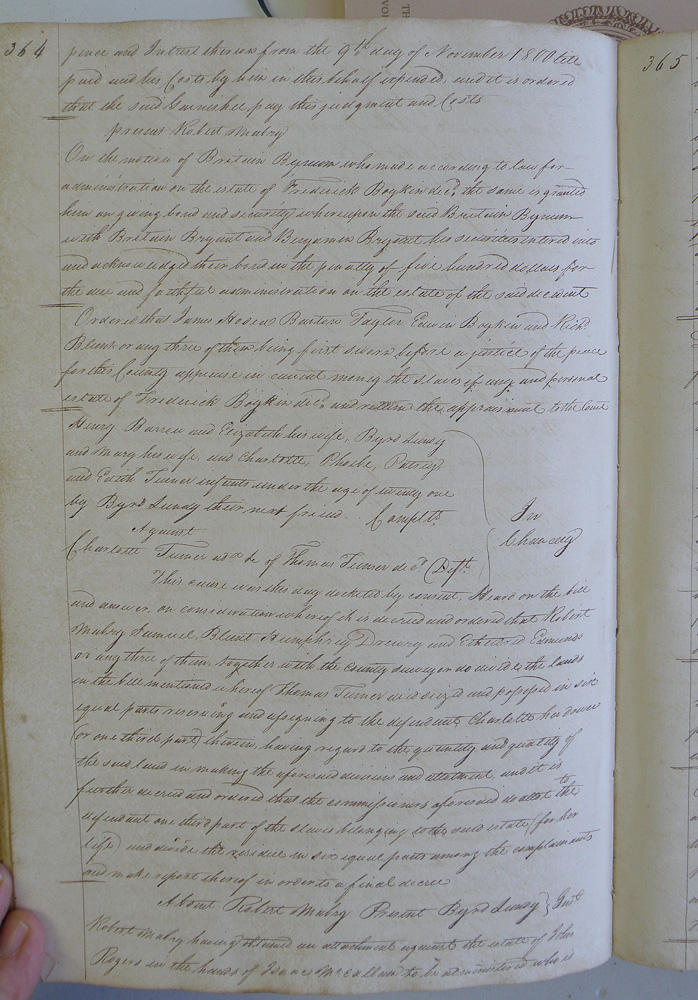 364
pence and Intrest thereon from the 9th day of November 1800 till
paid and his Costs by him in this behalf expended, and it is ordered
that the said Garnishee pay this judgment and Costs
present Robert Mabry
On the motion of Britain Bynum who made according to law for
administration on the estate of Frederick Boykin decd. the same is granted
him on giving bond and security whereupon the said Britain Bynum
with Britain Bryant and Benjamin Bryant his securities entered into
and acknowledged their bond in the penalty of five hundred dollars for
the due and faithful administration on the estate of the said decedent
Ordered that James Barton Taylor Edwin Boykin and Richd.
Blunt or any three of them being first sworn before a justice of the peace
for this County appraise in current money the slaves if any and personal
estate of Frederick Boykin decd. and return the appraisment to the Court
Henry Barrow and Elizabeth his wife, Byrd Lundy
and Mary his wife, and Charlotte, Phoebe, Patsey
and Edith Turner infants under the age of twenty one
by Byrd Lundy their next friend Complts
Against
Charlotte Turner adx &c of Thomas Turner decd Deft.
In
Chancery
This cause was this day docketed by consent, Heard on the bill
and answer, on consideration whereof it is decreed and ordered that Robert
Mabry Samuel Blunt Humphrey Drewry and Etheldred Edmunds
or any three of them together with the County surveyor do divide the lands
in the bill mentioned whereof Thomas Turner died seized and possessed in six
equal parts reserving and assigning to the defendant Charlotte her dower
(or one third part) therein, having regard to the quantity and quality of
the said land in making the aforesaid division and allotment, and it is
further decreed and ordered that the commissioners aforesaid do allot to the
defendant one third part of the slaves belonging to the said estate (for her
life) and divide the residue in six equal parts among the complainants
and make report thereof in order to a final decree
Absent Robert Mabry Present Byrd Lundy } Gent
Robert Mabry having obtained an attachment against the estate of John
Rogers in the hands of Isaac McCallum to be administered who is
365